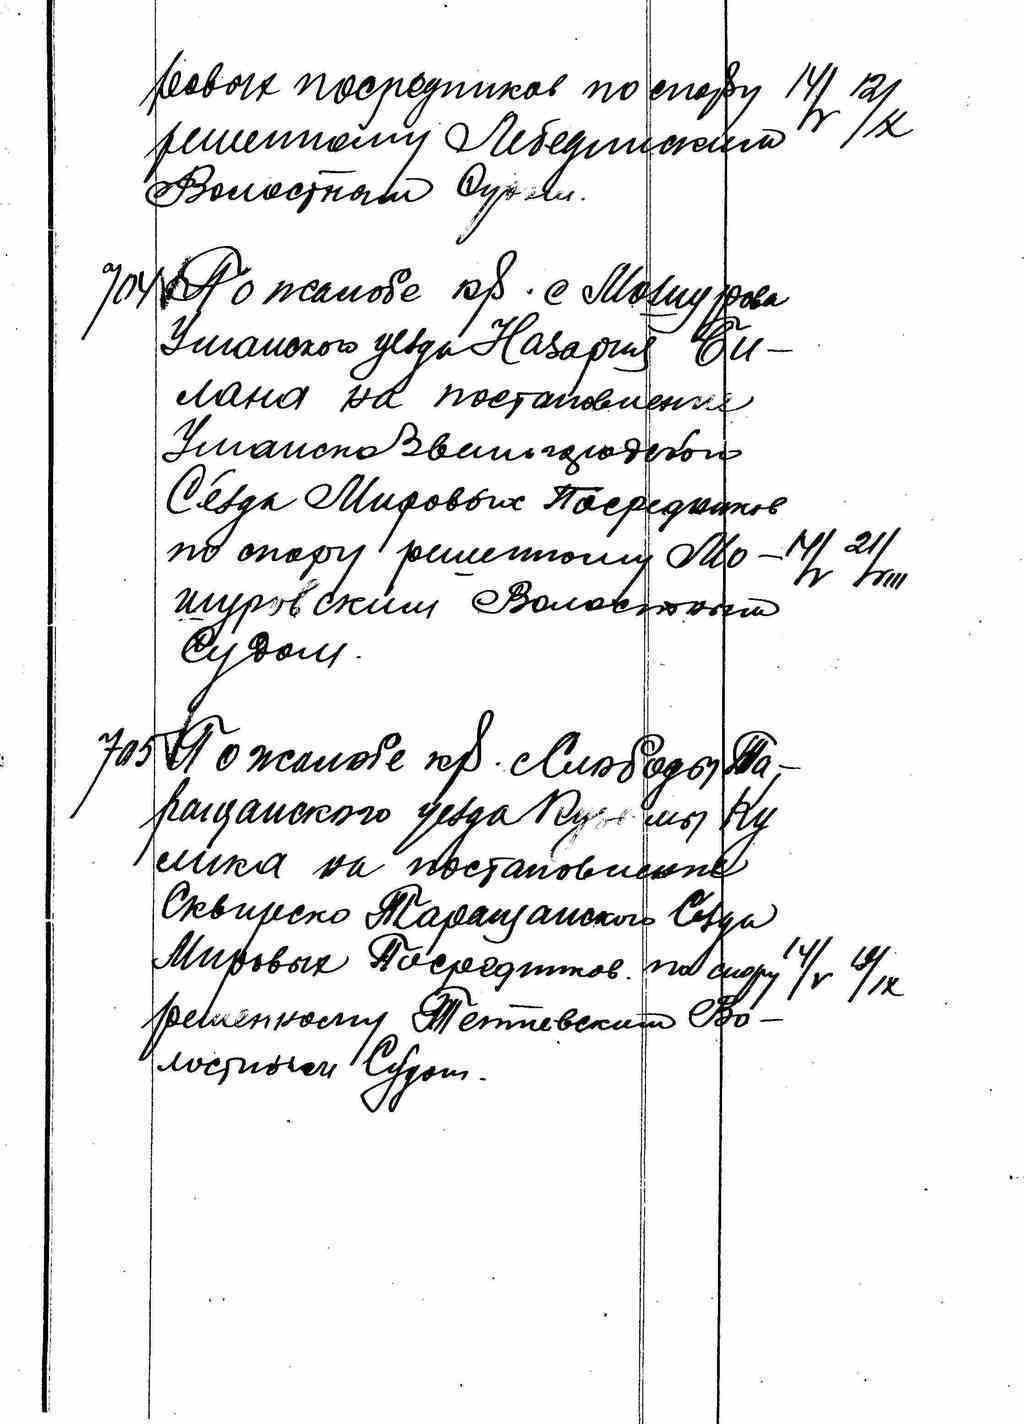 ровых посредников по спору 14/V 12/IX
решенному Лебединским
Волостным Судом.
704 По жалобе кр. с Мошурова
Уманского уезда Назария Би-
лана на постановление
Уманско Звенигородского
Съезда Мировых Посредников
по спору решенному Мо- 14/V 21/VIII
шуровским Волостным
Судом.
705 По жалобе кр. с Слободы Та-
ращанского уезда Кузьмы Ку
лика на постановление
Сквирско Таращанского Съезда
Мировых Посредников по спору 14/V /IX
решенному Тетиевским Во-
лостным Судом.